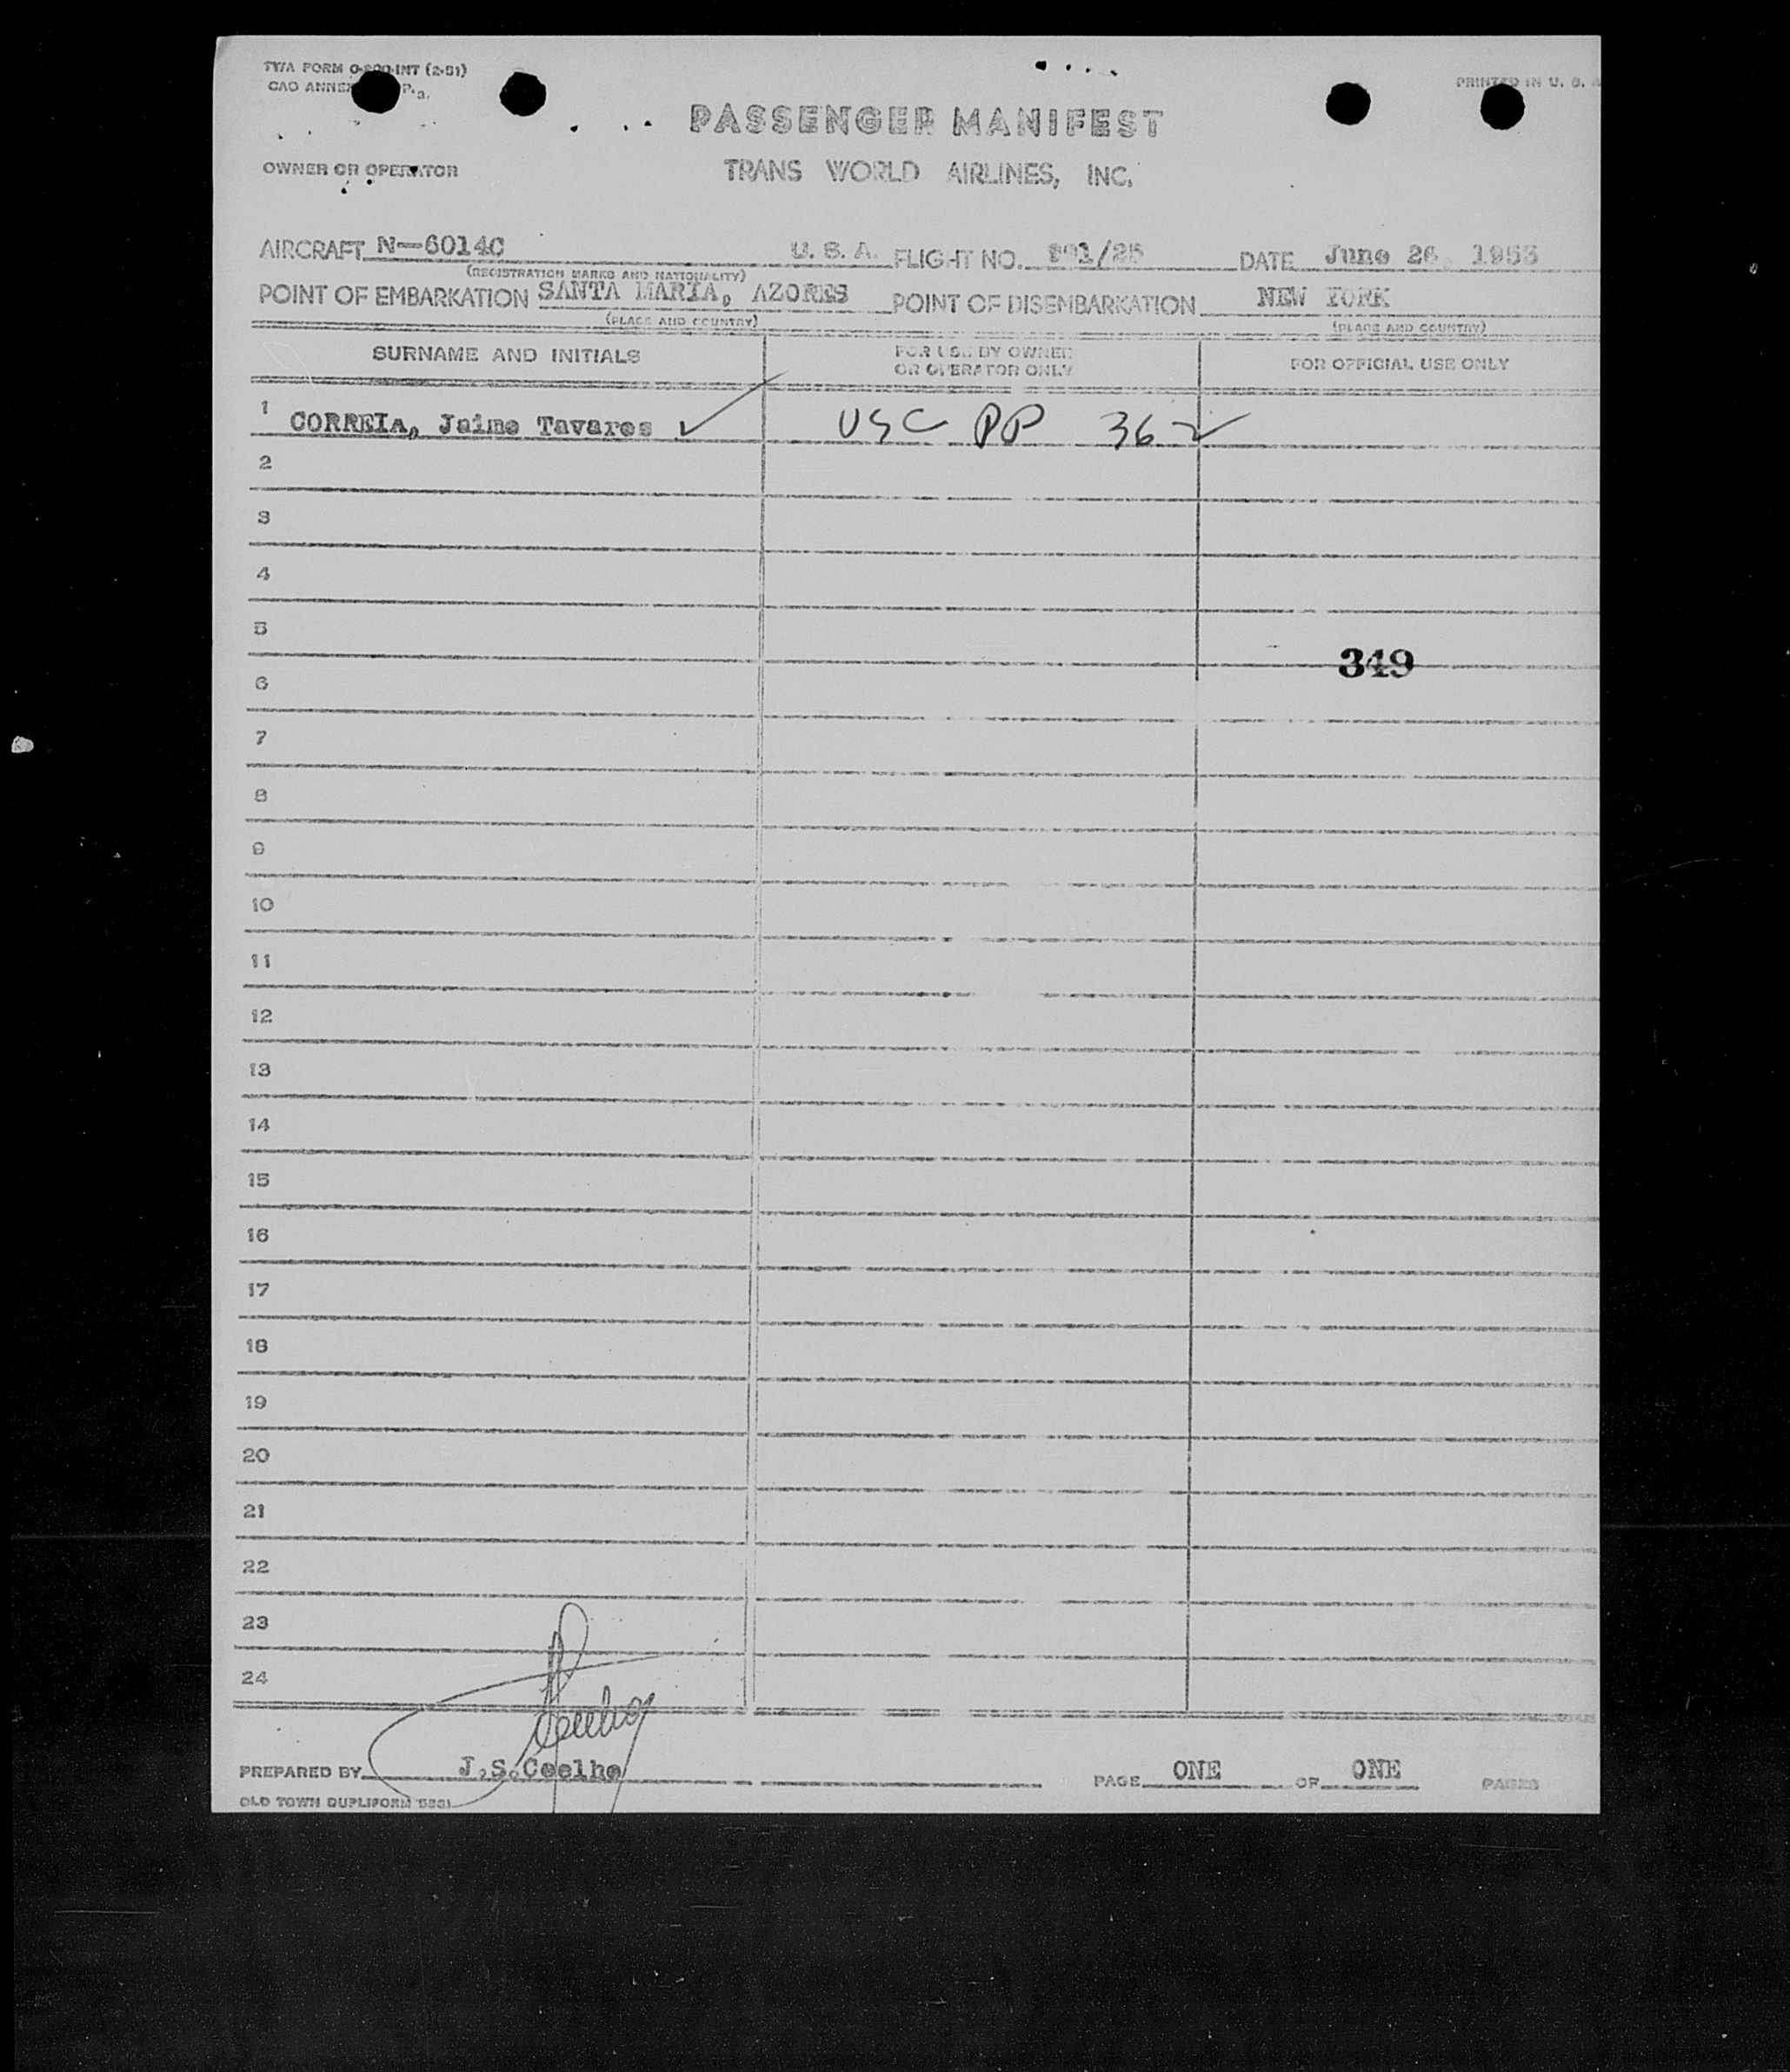 TWA FORM INT (2-51)
PRINTED IN U. S.
PASSENGER MANIFEST
OWNER OR OPERATOR
TRANS WORLD AIRLINES, INC.
AIRCRAFT N-6014C U. S. A. FLIGHT NO. DATE June 26, 1953
(REGISTRATION MARKS AND NATIONALITY)
POINT OF EMBARKATION SANTA MARIA, AZORES POINT OF DISEMBARKATION NEW YORK
(PLACE AND COUNTRY) (PLACE AND COUNTRY)
SURNAME AND INITIALS FOR USE BY OWNER OR OPERATOR ONLY FOR OFFICIAL USE ONLY
1 CORREIA, Jaime Tavares ✓ USC PP 362
2
3
4
5
349
6
7
8
9
10
11
12
13
14
15
16
17
18
19
20
21
22
23
24
PREPARED BY J.S.Coelho PAGE ONE OF ONE PAGES
OLD TOWN DUPLIFORM